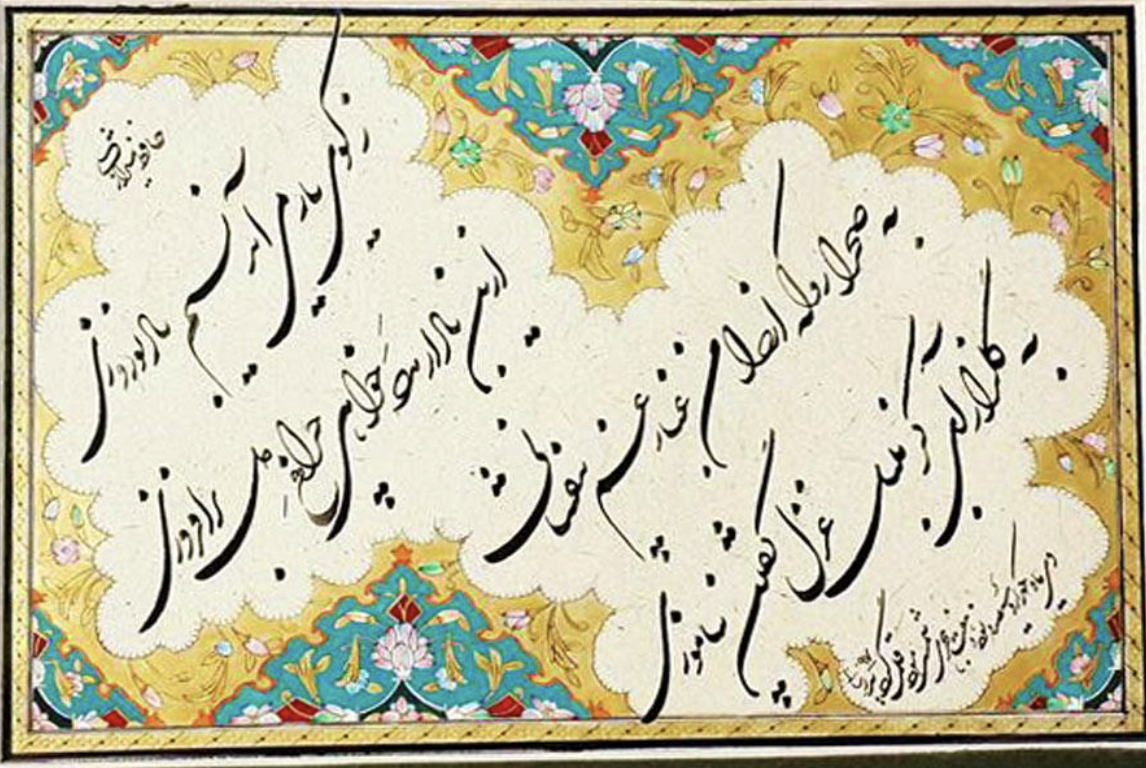 ز کوی یار می آید نسیم باد نوروزی
ازین باد ار مدد خواهی چراغ دل برافروزی
به صحرا رو که از دامن غبار غم بیفشانی
به گلزار آی کز بلبل غزل گفتن بیاموزی